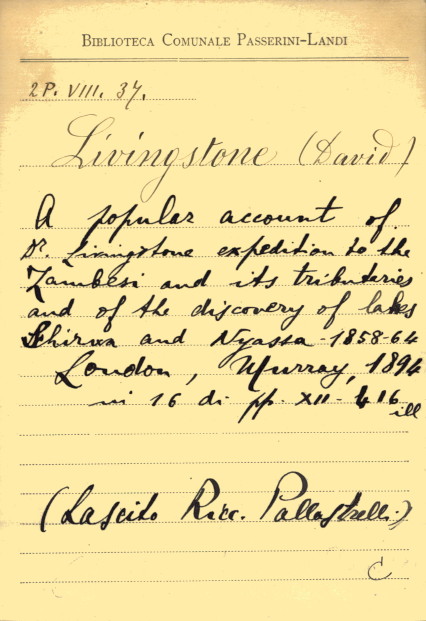 BIBLIOTECA COMUNALE PASSERINI-LANDI
2P. VIII. 37.
Livingstone (David)
A popular account of
Dr. Livingstone expedition to the
Zambesi and its tributaries
and of the discovery of lakes
Shirwa and Nyassa - 1858-64
London, Murray, 1894
in 16 di pp. XII - 416
ill
(Lascito Ricc. Pallastrelli.)
C